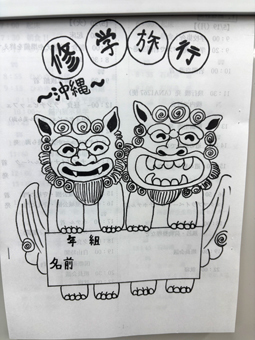 修学旅行
～沖縄～
年 組
名前